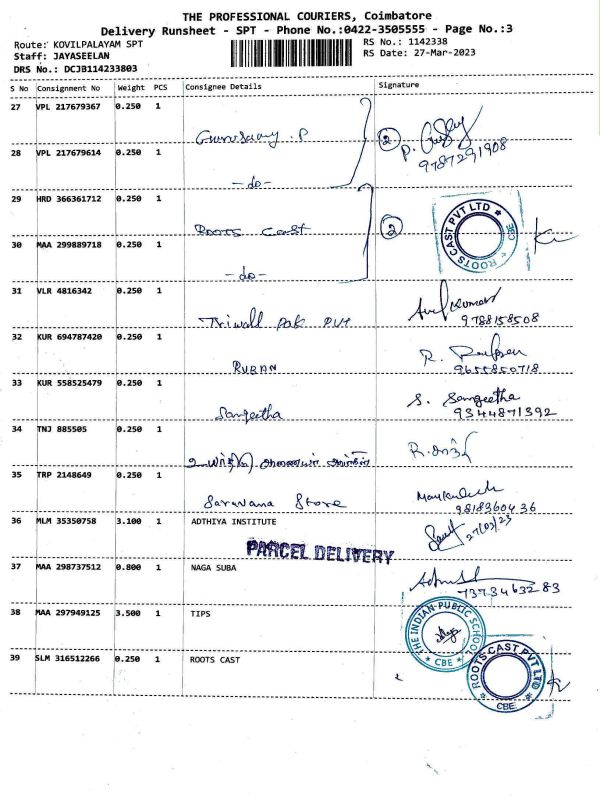 THE PROFESSIONAL COURIERS, Coimbatore
Delivery Runsheet - SPT - Phone No.:0422-3505555 - Page No.:3
Route: KOVILPALAYAM SPT
RS No.: 1142338
Staff: JAYASEELAN
RS Date: 27-Mar-2023
DRS No.: DCJB114233803
S No Consignment No Weight PCS Consignee Details Signature
27 VPL 217679367 0.250 1
Gurusamy .P
② P.
9787291908
28 VPL 217679614 0.250 1
-do-
29 HRD 366361712 0.250 1
Roots Cast
②
ROOTS CAST PVT LTD CBE
30 MAA 299889718 0.250 1
-do-
31 VLR 4816342 0.250 1
Triwall Pak PVT
9788158508
32 KUR 694787420 0.250 1
RUBAN
R.
9655850718
33 KUR 558525479 0.250 1
Sangeetha
S. Sangeetha
9344871392
34 TNJ 885505 0.250 1
R.
35 TRP 2148649 0.250 1
Saravana Store
9818360436
36 MLM 35350758 3.100 1 ADTHIYA INSTITUTE
27/03/23
PARCEL DELIVERY
37 MAA 298737512 0.800 1 NAGA SUBA
7373463283
38 MAA 297949125 3.500 1 TIPS
THE INDIAN PUBLIC SCHOOL CBE
39 SLM 316512266 0.250 1 ROOTS CAST
ROOTS CAST PVT LTD CBE